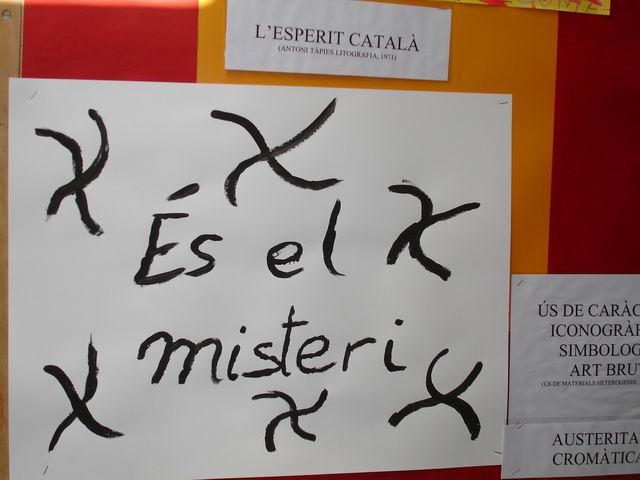 L'ESPERIT CATALÀ
(ANTONI TÀPIES LITOGRAFIA, 1971)
És el
misteri
ÚS DE
ICONOGRÀF
SIMBOLOG
ART BRUT
(ÚS DE MATERIALS HETEROGENIS:
AUSTERITA
CROMÀTICA